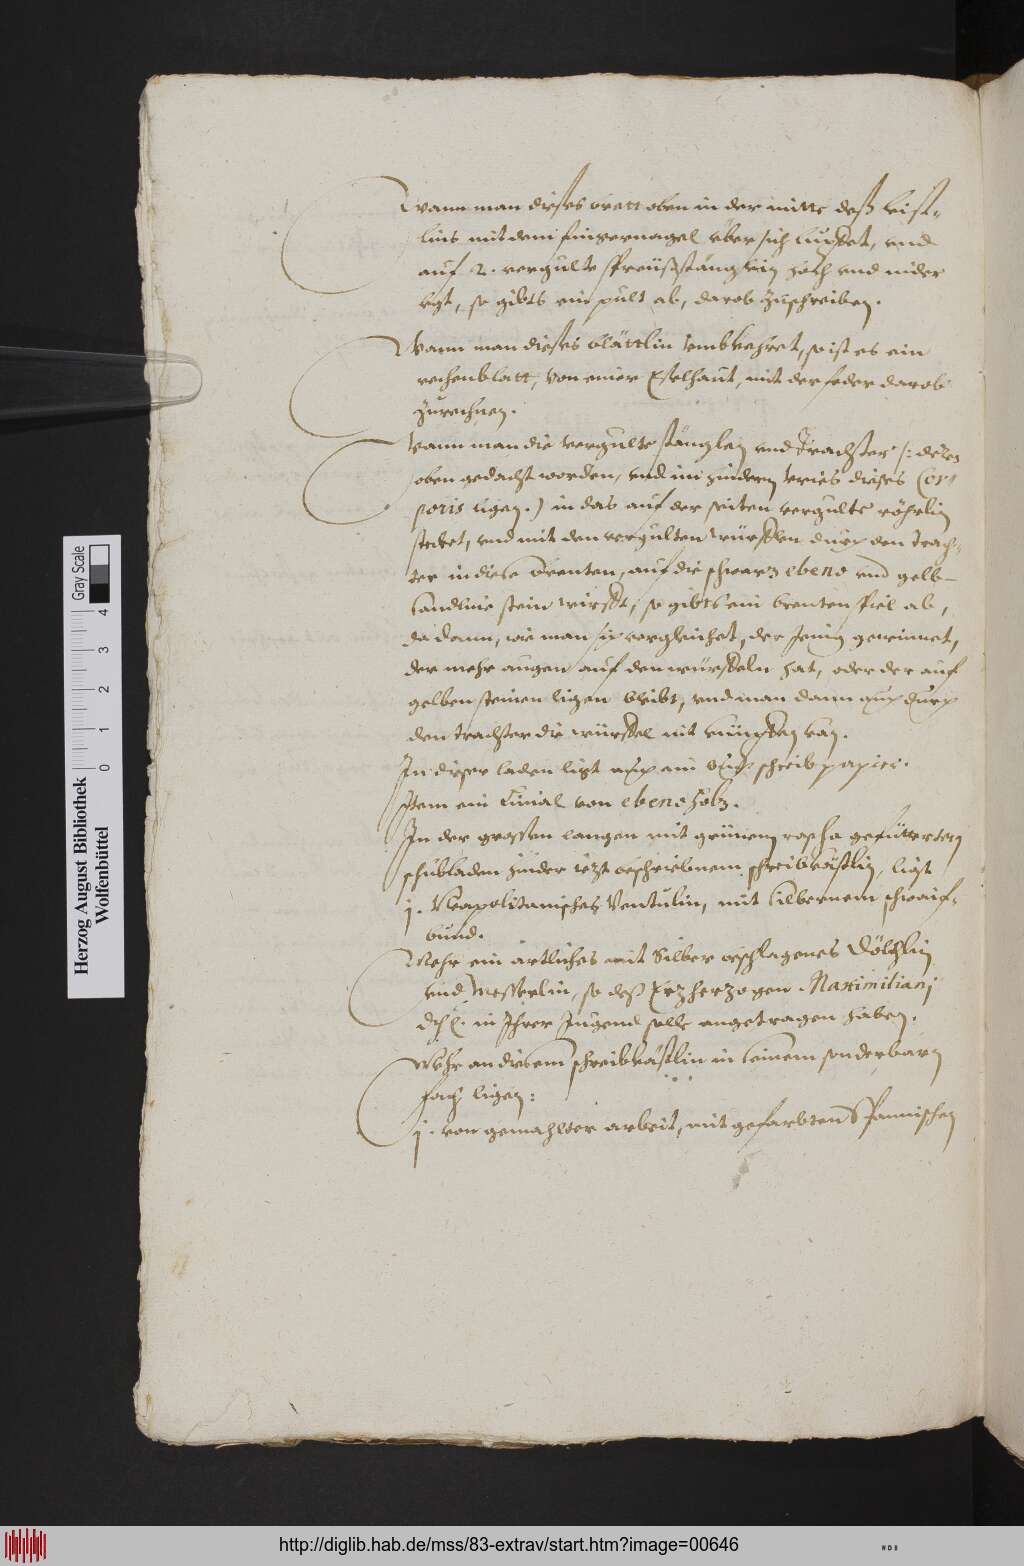 Wann man dieses brett oben in der mitte deß leist-
lins mit dem fingernagel über sich lupffet, und
auf 2. vergulte spreüsstänglein hoch und nider
legt, so gibts ein pult ab, darob zuschreiben.
Wann man dieses blättlin umbkehret, so ist es ein
rechenblatt, von einer Eselhaut, mit der feder darob
zurechnen.
Wann man die vergulte stänglen und Trachter /: deren
oben gedacht worden, und im hindern dieses Cor
poris ligen.) in das auf der seiten vergulte röhrlin
stecket, und mit den vergulten würfflen durch den Trach-
ter in diese brenten, auf die schwarz ebeno und gelb
stein wirfft, so gibts ein brenten spiel ab,
da dann, wie man sich vergleichet, der jenig gewinnet,
der mehr augen auf den würffeln hat, oder der auf
gelben steinen ligen bleibt, und man dann auch durch
den trachter die würffel nit knüpffen kan.
In dieser laden ligt auch ein buch schreibpapier.
Item ein Linial von ebenoholz.
In der grossen langen mit grünem rascha gefütterten
schubladen hinder iezt beschribnem schreibkästlin, ligt
j. Neapolitanisches Ventulin, mit silbernem schwaif-
bund.
Mehr ein artliches mit Silber beschlagenes Dölchlin
und Messerlin, so deß Erzherzogen Maximilianj
in Ihrer Jugend solle angetragen haben.
Mehr an diesem schreibkästlin in einem sonderbaren
fach ligen:
j. von gemahlter arbeit, mit gefarbten Spannischen
Herzog August Bibliothek
Wolfenbüttel
Gray Scale
0 1 2 3 4
http://diglib.hab.de/mss/83-extrav/start.htm?image=00646
WDB